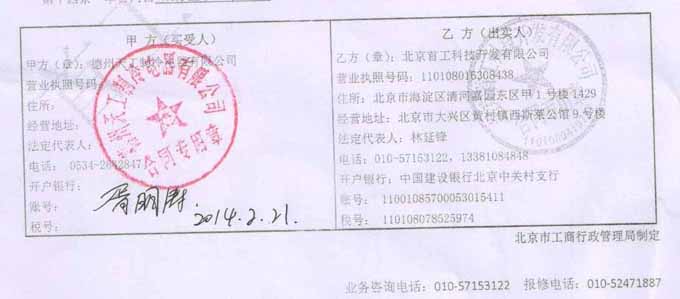 甲 方（买受人）
甲方（章）：德州天工制冷电器有限公司
营业执照号码：
住所：
经营地址：
法定代表人：
电话： 0534-2682847
开户银行：
账号：
税号：
2014.2.21.
天工制冷电器有限公司
合同专用章
乙 方（出卖人）
乙方（章）：北京首工科技开发有限公司
营业执照号码：110108016308438
住所：北京市海淀区清河嘉园东区甲 1 号楼 1429
经营地址：北京市大兴区黄村镇西斯莱公馆 9 号楼
法定代表人：林廷锋
电话：010-57153122，13381084848
开户银行：中国建设银行北京中关村支行
账号： 11001085700053015411
税号： 110108078525974
北京市工商行政管理局制定
业务咨询电话: 010-57153122 报修电话: 010-52471887